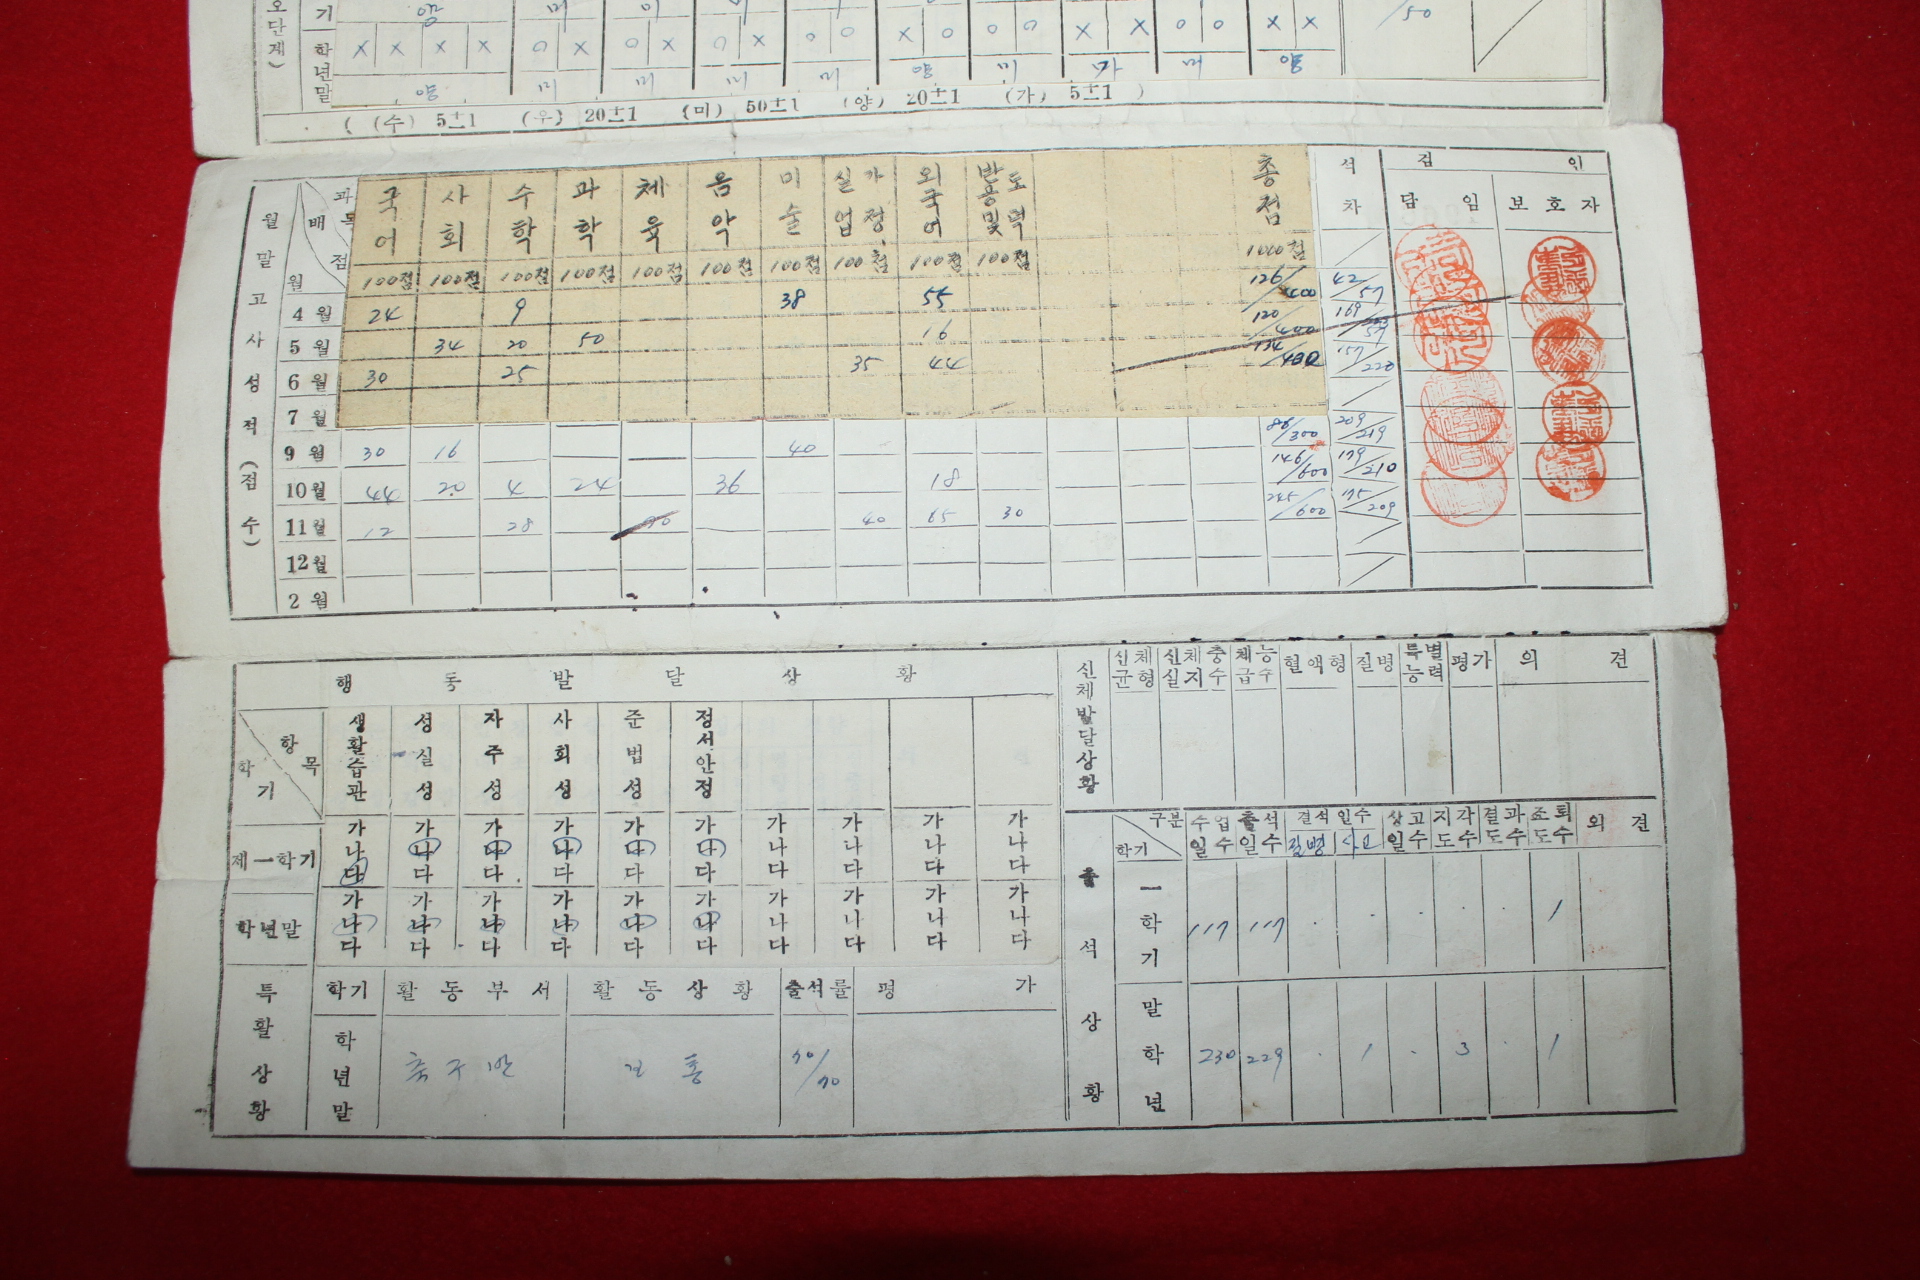 오단계)
기 양 미 미 미
학년말 × × × × ○ × ○ × ○ × ○ ○ × ○ ○ ○ × × ○ ○ × × /50
양 미 미 미 미 양 미 가 미 양
( (수) 5±1 (우) 20±1 (미) 50±1 (양) 20±1 (가) 5±1 )
월말고사성적(점수)
월 배점 과목 국어 사회 수학 과학 체육 음악 미술 실업 가정 외국어 반응및 노력 총점 석차 검인
담임 보호자
100점 100점 100점 100점 100점 100점 100점 100점 100점 100점 1000점
4월 24 9 38 55 126/400 42/57
5월 34 20 50 16 120/400 169
6월 30 25 35 44 134/400 157/220
7월
9월 30 16 40 86/300 209/219
10월 44 20 4 24 36 18 146/600 179/210
11월 12 28 70 40 65 30 245/600 175/209
12월
2월
행동발달상황
학기 항목 생활습관 성실성 자주성 사회성 준법성 정서안정
제一학기 가나다 가나다 가나다 가나다 가나다 가나다 가나다 가나다 가나다 가나다
학년말 가나다 가나다 가나다 가나다 가나다 가나다 가나다 가나다 가나다 가나다
특활상황 학기 활동부서 활동상황 출석률 평가
학년말 축구반 보통 70/70
신체발달상황 신체균형 신체충실지수 체능급수 혈액형 질병 특별능력 평가 의견
출석상황 구분 학기 수업일수 출석일수 결석일수 질병 사고 상고일수 지각도수 결과도수 조퇴도수 의견
一학기 117 117 · · · · · 1
말학년 230 229 · 1 · 3 · 1